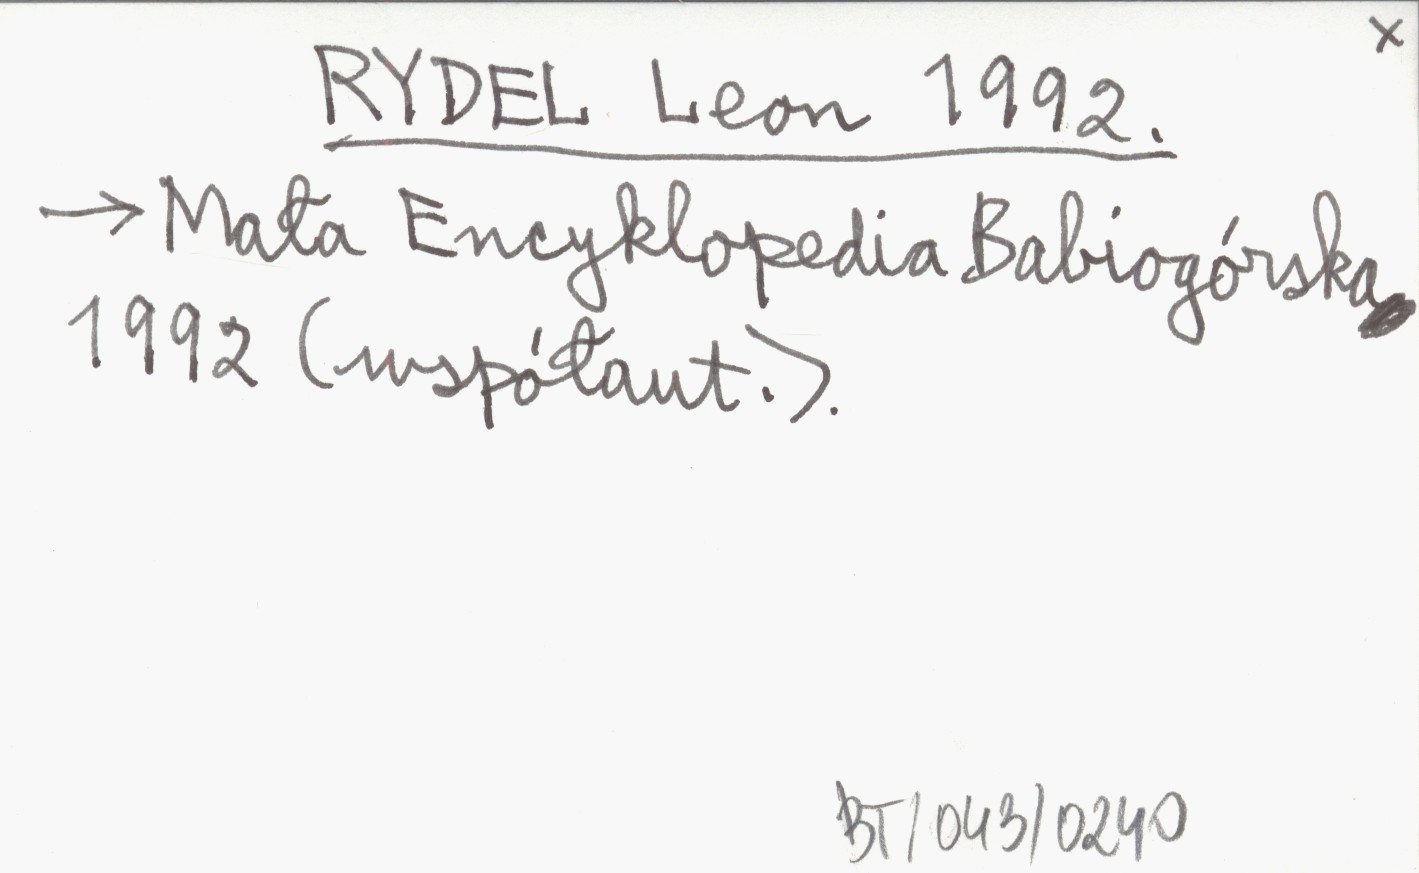 x
RYDEL Leon 1992.
→ Mała Encyklopedia Babiogórska
1992 (współaut.).
BT/043/0240